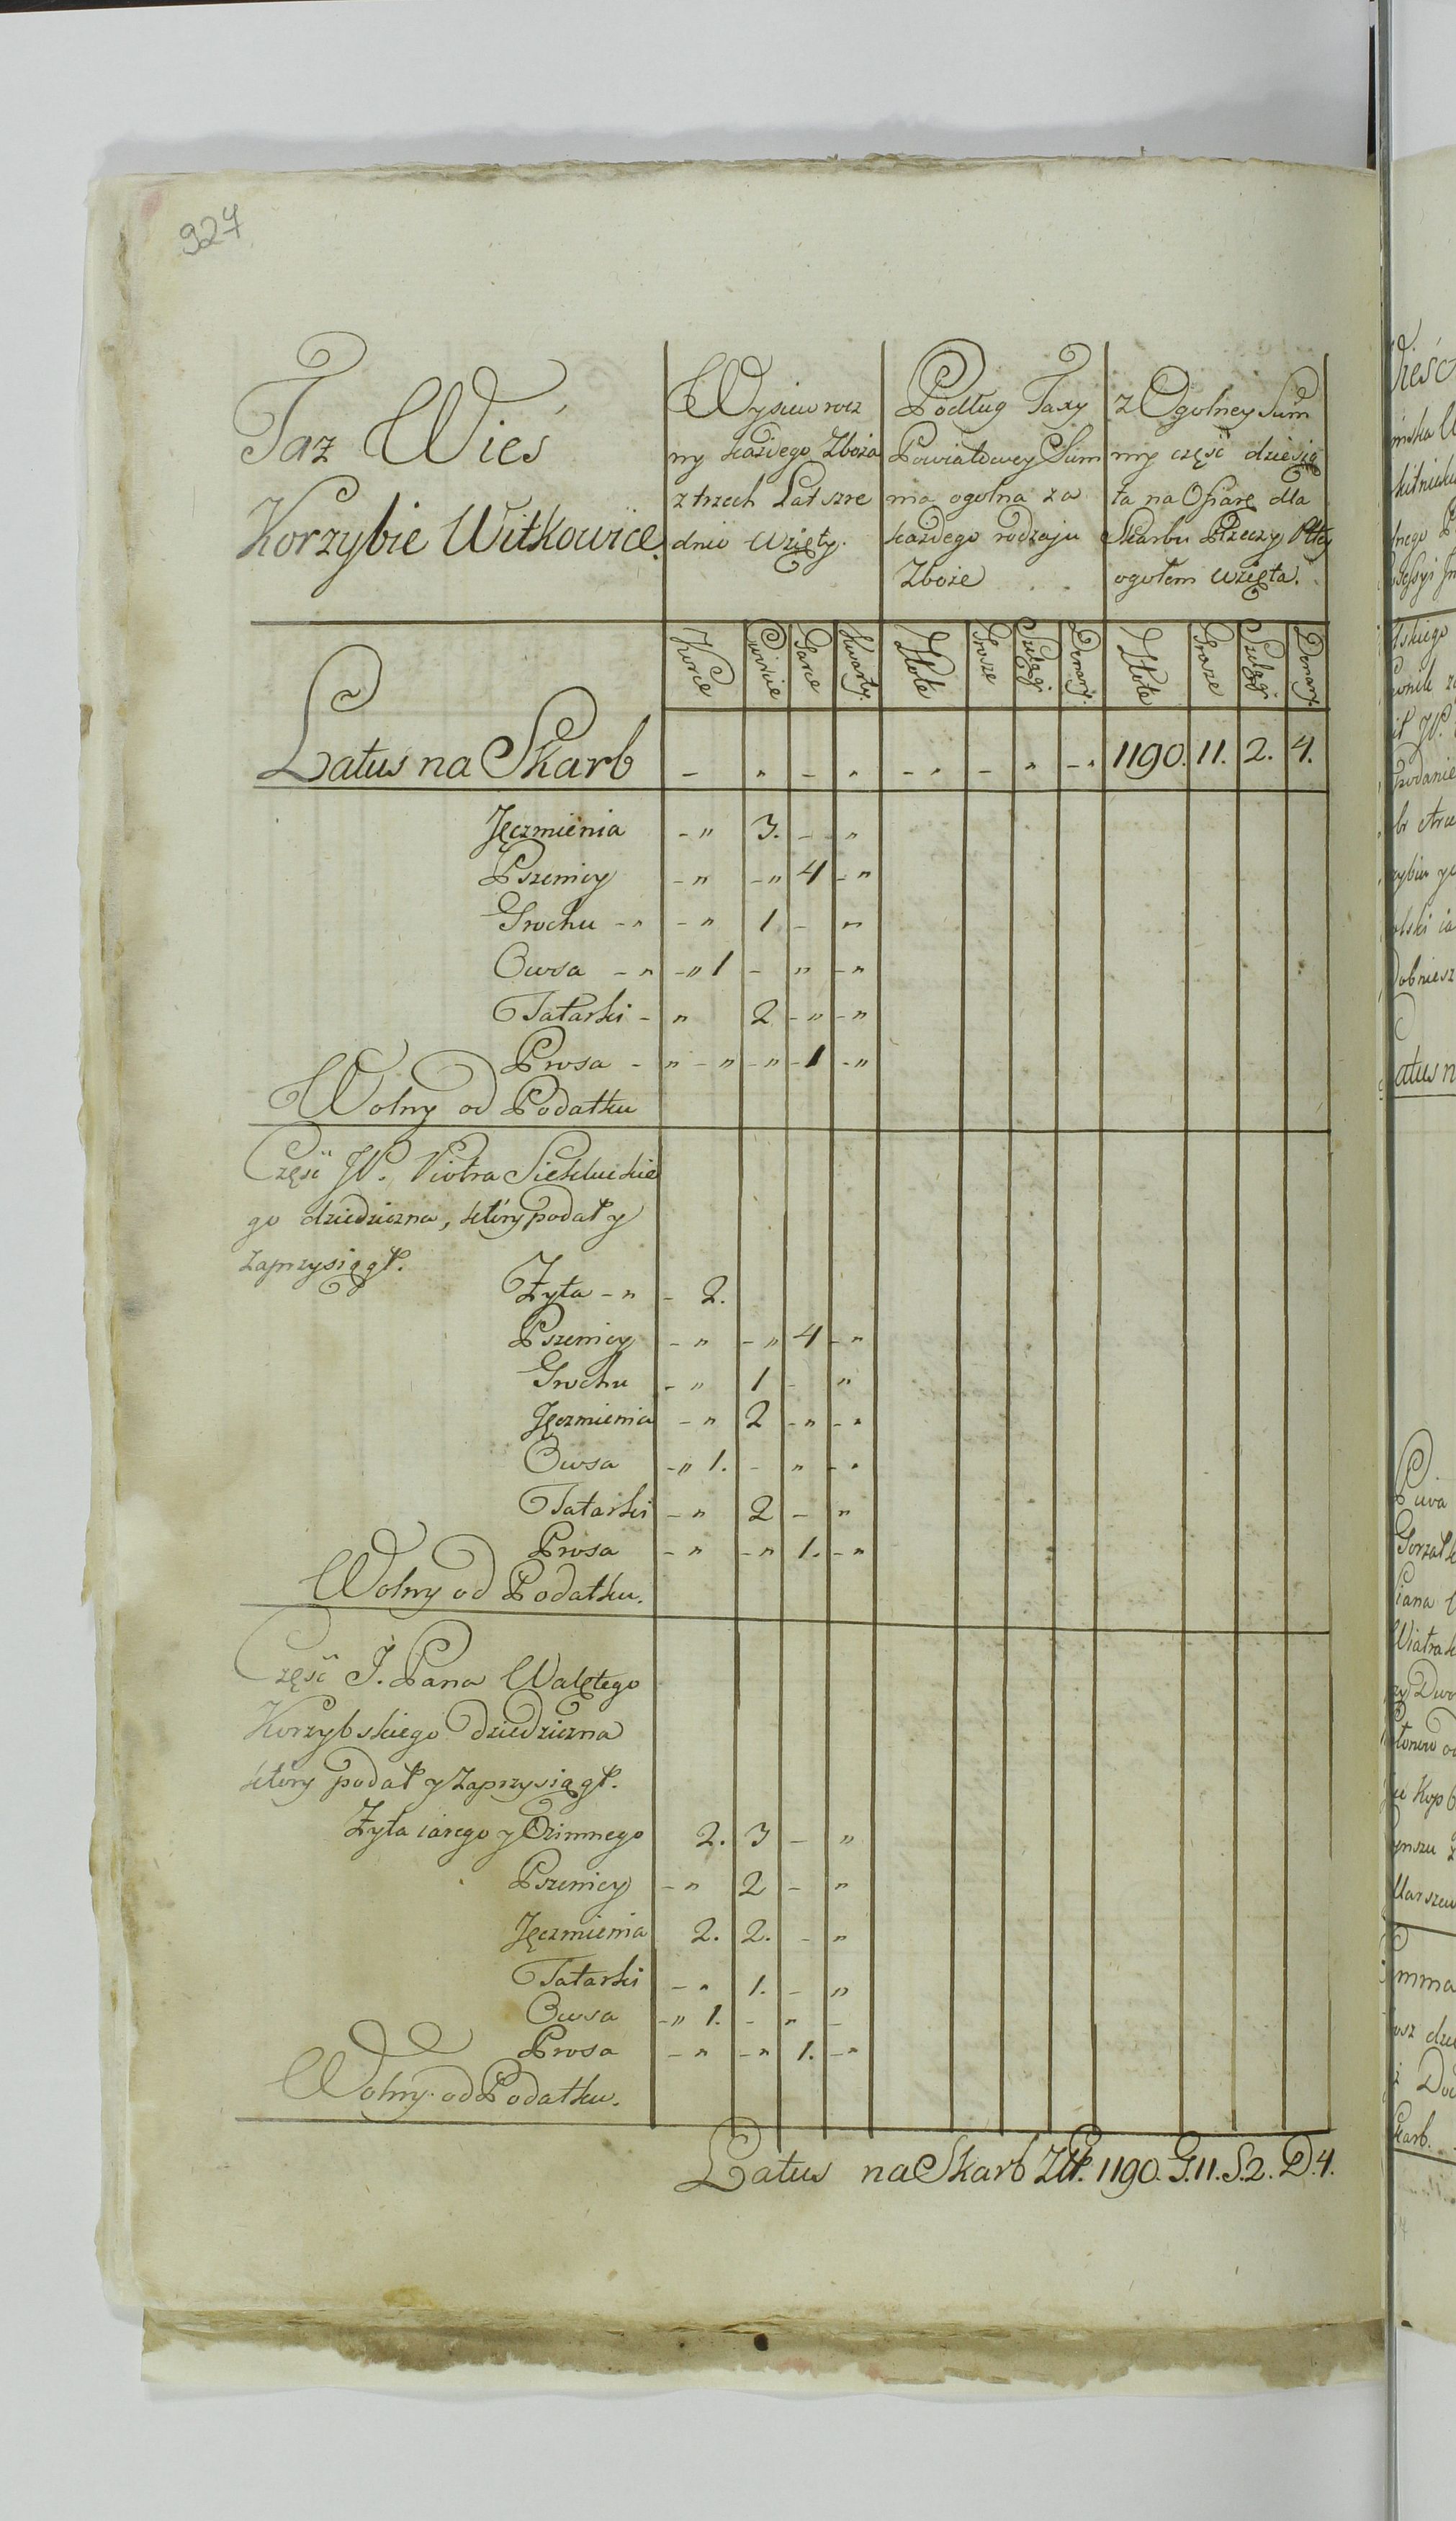 927
Taż Wieś
Korzybie Witkowice.
Wysiew rocz
ny każdego Zboża
z trzech Lat szre
dnio wzięty.
Podług Taxy
Powiatowey Sum
ma ogolna za
każdego rodzaju
Zboże
z Ogolney Sum
my część dziesią
ta na Ofiarę dla
Skarbu Rzeczy Pltey
ogołem wzięta.
Korce Cwircie Garce Kwarty. Złote Grosze Szelągi Denary. Złote Grosze Szelągi Denary.
Latus na Skarb - " - " - " - " - " 1190. 11. 2. 4.
Jęczmienia - " 3. - "
Pszenicy - " - " 4 - "
Grochu - " - " 1 - "
Owsa - " - " 1 - " - "
Tatarki - " 2 - " - "
Prosa - " - " - " - 1 - "
Wolny od Podatku
Część JP. Piotra Siekluckie
go dziedziczna, który podał y
zaprzysiągł.
Żyta - " - 2.
Pszenicy - " - " 4 - "
Grochu - " 1 - "
Jęczmienia - " 2 - " - "
Owsa - " 1. - " - "
Tatarki - " 2 - "
Prosa - " - " 1. - "
Wolny od Podatku.
Część J. Pana Walętego
Korzybskiego Dziedziczna
który podał y Zaprzysiągł.
Żyta iarego y Ozimnego 2. 3 - "
Pszenicy - " 2 - "
Jęczmienia 2. 2. - "
Tatarki - " 1. - "
Owsa - " 1. - " -
Prosa - " - " 1. - "
Wolny od Podatku.
Latus na Skarb Złt. 1190. G. 11. S. 2. D. 4.